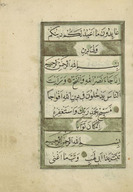 عابدون ما اعبد لكم دينكم
ولى دين
بسم الله الرحمن الرحيم
اذا جاء نصر الله والفتح ورايت
الناس يدخلون فى دين الله افواجا
فسبح بحمد ربك واستغفره
انه كان توابا
بسم الله الرحمن الرحيم
تبت يدا ابى لهب وتب ما اغنى